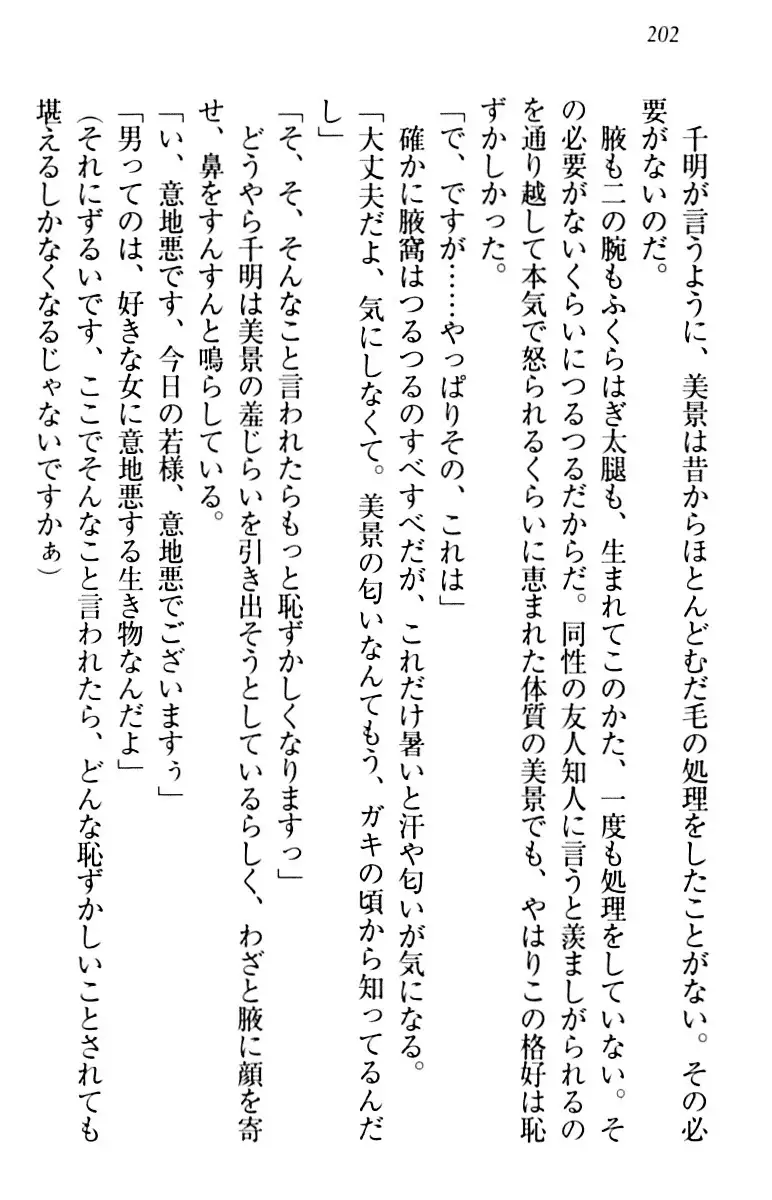 202
千明が言うように、美景は昔からほとんどむだ毛の処理をしたことがない。その必
要がないのだ。
腋も二の腕もふくらはぎ太腿も、生まれてこのかた、一度も処理をしていない。そ
の必要がないくらいにつるつるだからだ。同性の友人知人に言うと羨ましがられるの
を通り越して本気で怒られるくらいに恵まれた体質の美景でも、やはりこの格好は恥
ずかしかった。
「で、ですが……やっぱりその、これは」
確かに腋窩はつるつるのすべすべだが、これだけ暑いと汗や匂いが気になる。
「大丈夫だよ、気にしなくて。美景の匂いなんてもう、ガキの頃から知ってるんだ
し」
「そ、そ、そんなこと言われたらもっと恥ずかしくなりますっ」
どうやら千明は美景の羞じらいを引き出そうとしているらしく、わざと腋に顔を寄
せ、鼻をすんすんと鳴らしている。
「い、意地悪です、今日の若様、意地悪でございますぅ」
「男ってのは、好きな女に意地悪する生き物なんだよ」
（それにずるいです、ここでそんなこと言われたら、どんな恥ずかしいことされても
堪えるしかなくなるじゃないですかぁ）